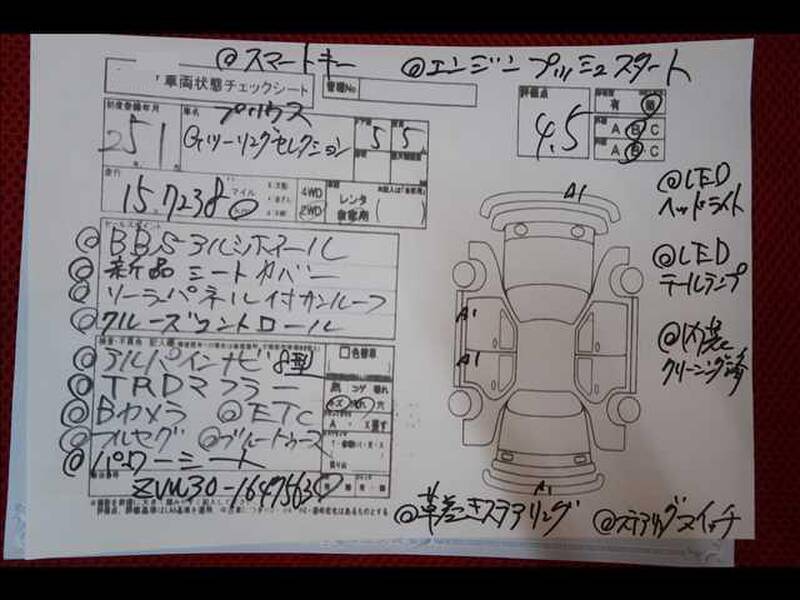 ◎スマートキー ◎エンジンプッシュスタート
車両状態チェックシート 管理No
初度登録年月 車名 プリウス 評価点 有 無
25 1 Gツーリングセレクション 5 5 4.5 A B C
A B C
走行 15,7238 マイル 4WD レンタ
2WD 自家用
◎LED
ヘッドライト
A1
セールスポイント
◎BBSアルミホイール
◎新品シートカバー
◎ソーラパネル付サンルーフ
◎クルーズコントロール
◎LED
テールランプ
A1
A1
◎内装
クリーニング済
◎アルパインナビ8型 色替車
◎TRDマフラー コゲ
◎Bカメラ ◎ETC キズ 穴
◎フルセグ ◎ブルートゥース
◎パワーシート
ZVW30-1647563
A1
◎革巻きステアリング ◎ステアリングスイッチ